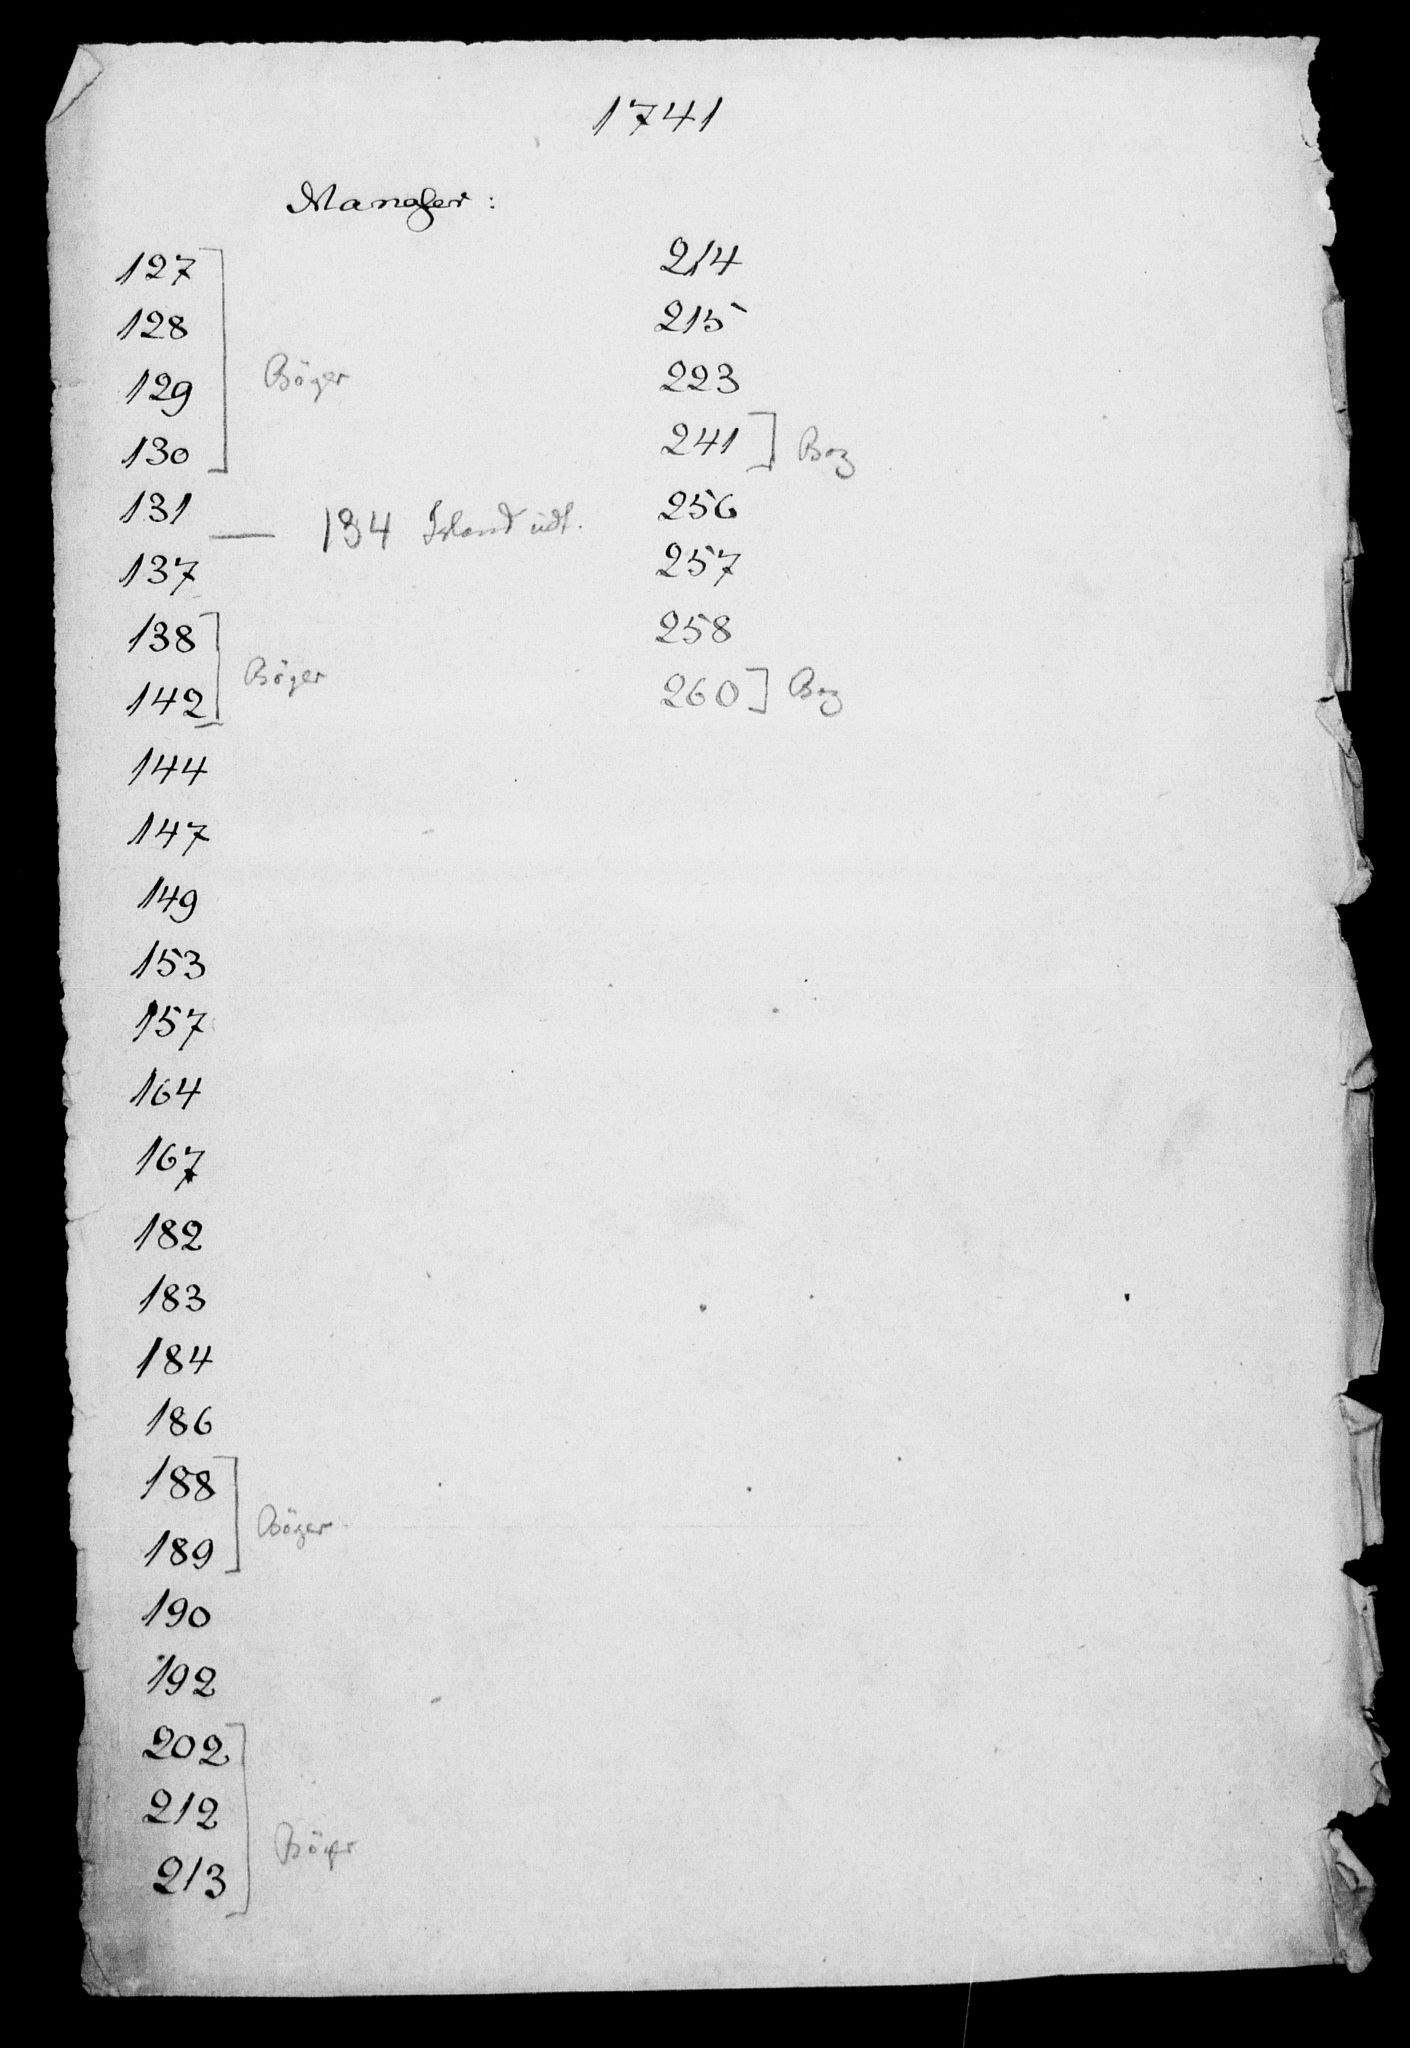 1741
Mangler:
127
128
129
130
Böger
131
— 134 Island udt.
137
138
142
Böger
144
147
149
153
157
164
167
182
183
184
186
188
189
Böger
190
192
202
212
213
Böger
214
215
223
241 ] Bog
256
257
258
260 ] Bog